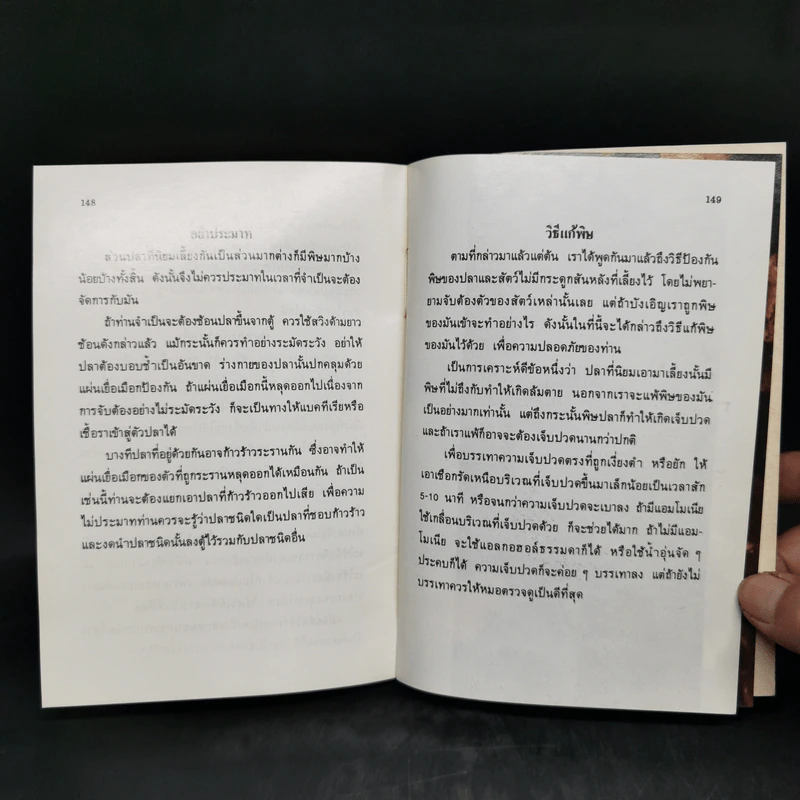 148
อย่าประมาท
ส่วนปลาที่นิยมเลี้ยงกันเป็นส่วนมากต่างก็มีพิษมากบ้าง
น้อยบ้างทั้งสิ้น ดังนั้นจึงไม่ควรประมาทในเวลาที่จำเป็นจะต้อง
จัดการกับมัน
ถ้าท่านจำเป็นจะต้องช้อนปลาขึ้นจากตู้ ควรใช้สวิงด้ามยาว
ช้อนดังกล่าวแล้ว แม้กระนั้นก็ควรทำอย่างระมัดระวัง อย่าให้
ปลาต้องบอบช้ำเป็นอันขาด ร่างกายของปลานั้นปกคลุมด้วย
แผ่นเยื่อเมือกป้องกัน ถ้าแผ่นเยื่อเมือกนี้หลุดออกไปเนื่องจาก
การจับต้องอย่างไม่ระมัดระวัง ก็จะเป็นทางให้แบคทีเรียหรือ
เชื้อราเข้าสู่ตัวปลาได้
บางทีปลาที่อยู่ด้วยกันอาจก้าวร้าวระรานกัน ซึ่งอาจทำให้
แผ่นเยื่อเมือกของตัวที่ถูกระรานหลุดออกได้เหมือนกัน ถ้าเป็น
เช่นนี้ท่านจะต้องแยกเอาปลาที่ก้าวร้าวออกไปเสีย เพื่อความ
ไม่ประมาทท่านควรจะรู้ว่าปลาชนิดใดเป็นปลาที่ชอบก้าวร้าว
และงดนำปลาชนิดนั้นลงตู้ไว้รวมกับปลาชนิดอื่น
149
วิธีแก้พิษ
ตามที่กล่าวมาแล้วแต่ต้น เราได้พูดกันมาแล้วถึงวิธีป้องกัน
พิษของปลาและสัตว์ไม่มีกระดูกสันหลังที่เลี้ยงไว้ โดยไม่พยา-
ยามจับต้องตัวของสัตว์เหล่านั้นเลย แต่ถ้าบังเอิญเราถูกพิษ
ของมันเข้าจะทำอย่างไร ดังนั้นในที่นี้จะได้กล่าวถึงวิธีแก้พิษ
ของมันไว้ด้วย เพื่อความปลอดภัยของท่าน
เป็นการเคราะห์ดีข้อหนึ่งว่า ปลาที่นิยมเอามาเลี้ยงนั้นมี
พิษที่ไม่ถึงกับทำให้เกิดล้มตาย นอกจากเราจะแพ้พิษของมัน
เป็นอย่างมากเท่านั้น แต่ถึงกระนั้นพิษปลาก็ทำให้เกิดเจ็บปวด
และถ้าเราแพ้ก็อาจจะต้องเจ็บปวดนานกว่าปกติ
เพื่อบรรเทาความเจ็บปวดตรงที่ถูกเงี่ยงตำ หรือยัก ให้
เอาเชือกรัดเหนือบริเวณที่เจ็บปวดขึ้นมาเล็กน้อยเป็นเวลาสัก
5-10 นาที หรือจนกว่าความเจ็บปวดจะเบาลง ถ้ามีแอมโมเนีย
ใช้เกลื่อนบริเวณที่เจ็บปวดด้วย ก็จะช่วยได้มาก ถ้าไม่มีแอม-
โมเนีย จะใช้แอลกอฮอล์ธรรมดาก็ได้ หรือใช้น้ำอุ่นจัด ๆ
ประคบก็ได้ ความเจ็บปวดก็จะค่อย ๆ บรรเทาลง แต่ถ้ายังไม่
บรรเทาควรให้หมอตรวจดูเป็นดีที่สุด